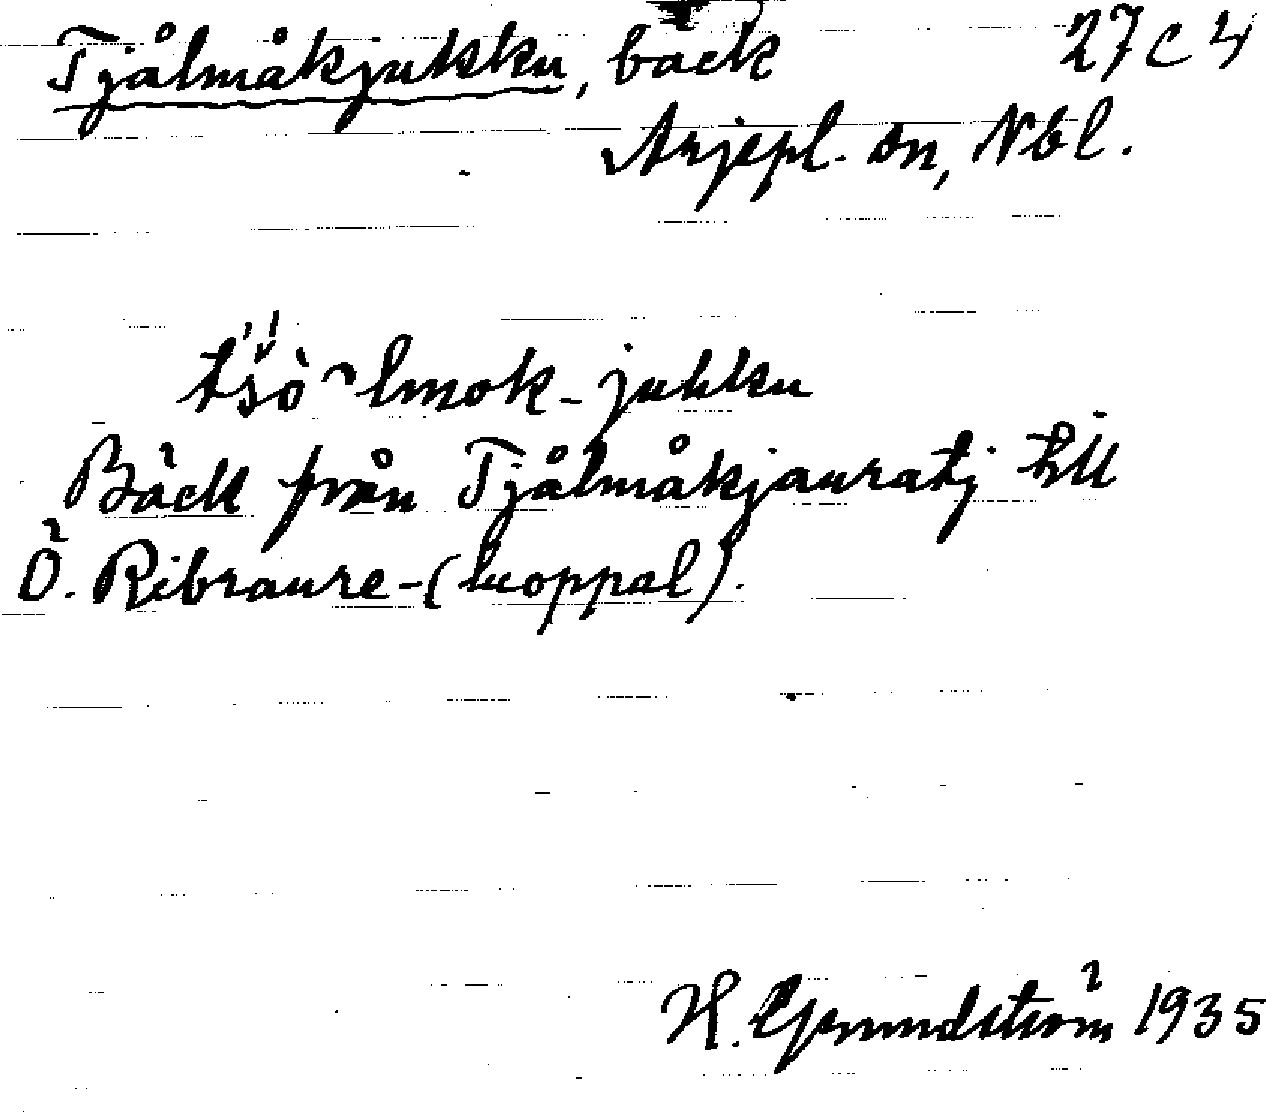 Tjålmåkjukku, bäck 27 C 4
Arjepl. sn, Nbl.
tšò lmok-jukku
Bäck från Tjålmåkjauratj till
Ö. Ribraure-(luoppal).
H. Grundström 1935